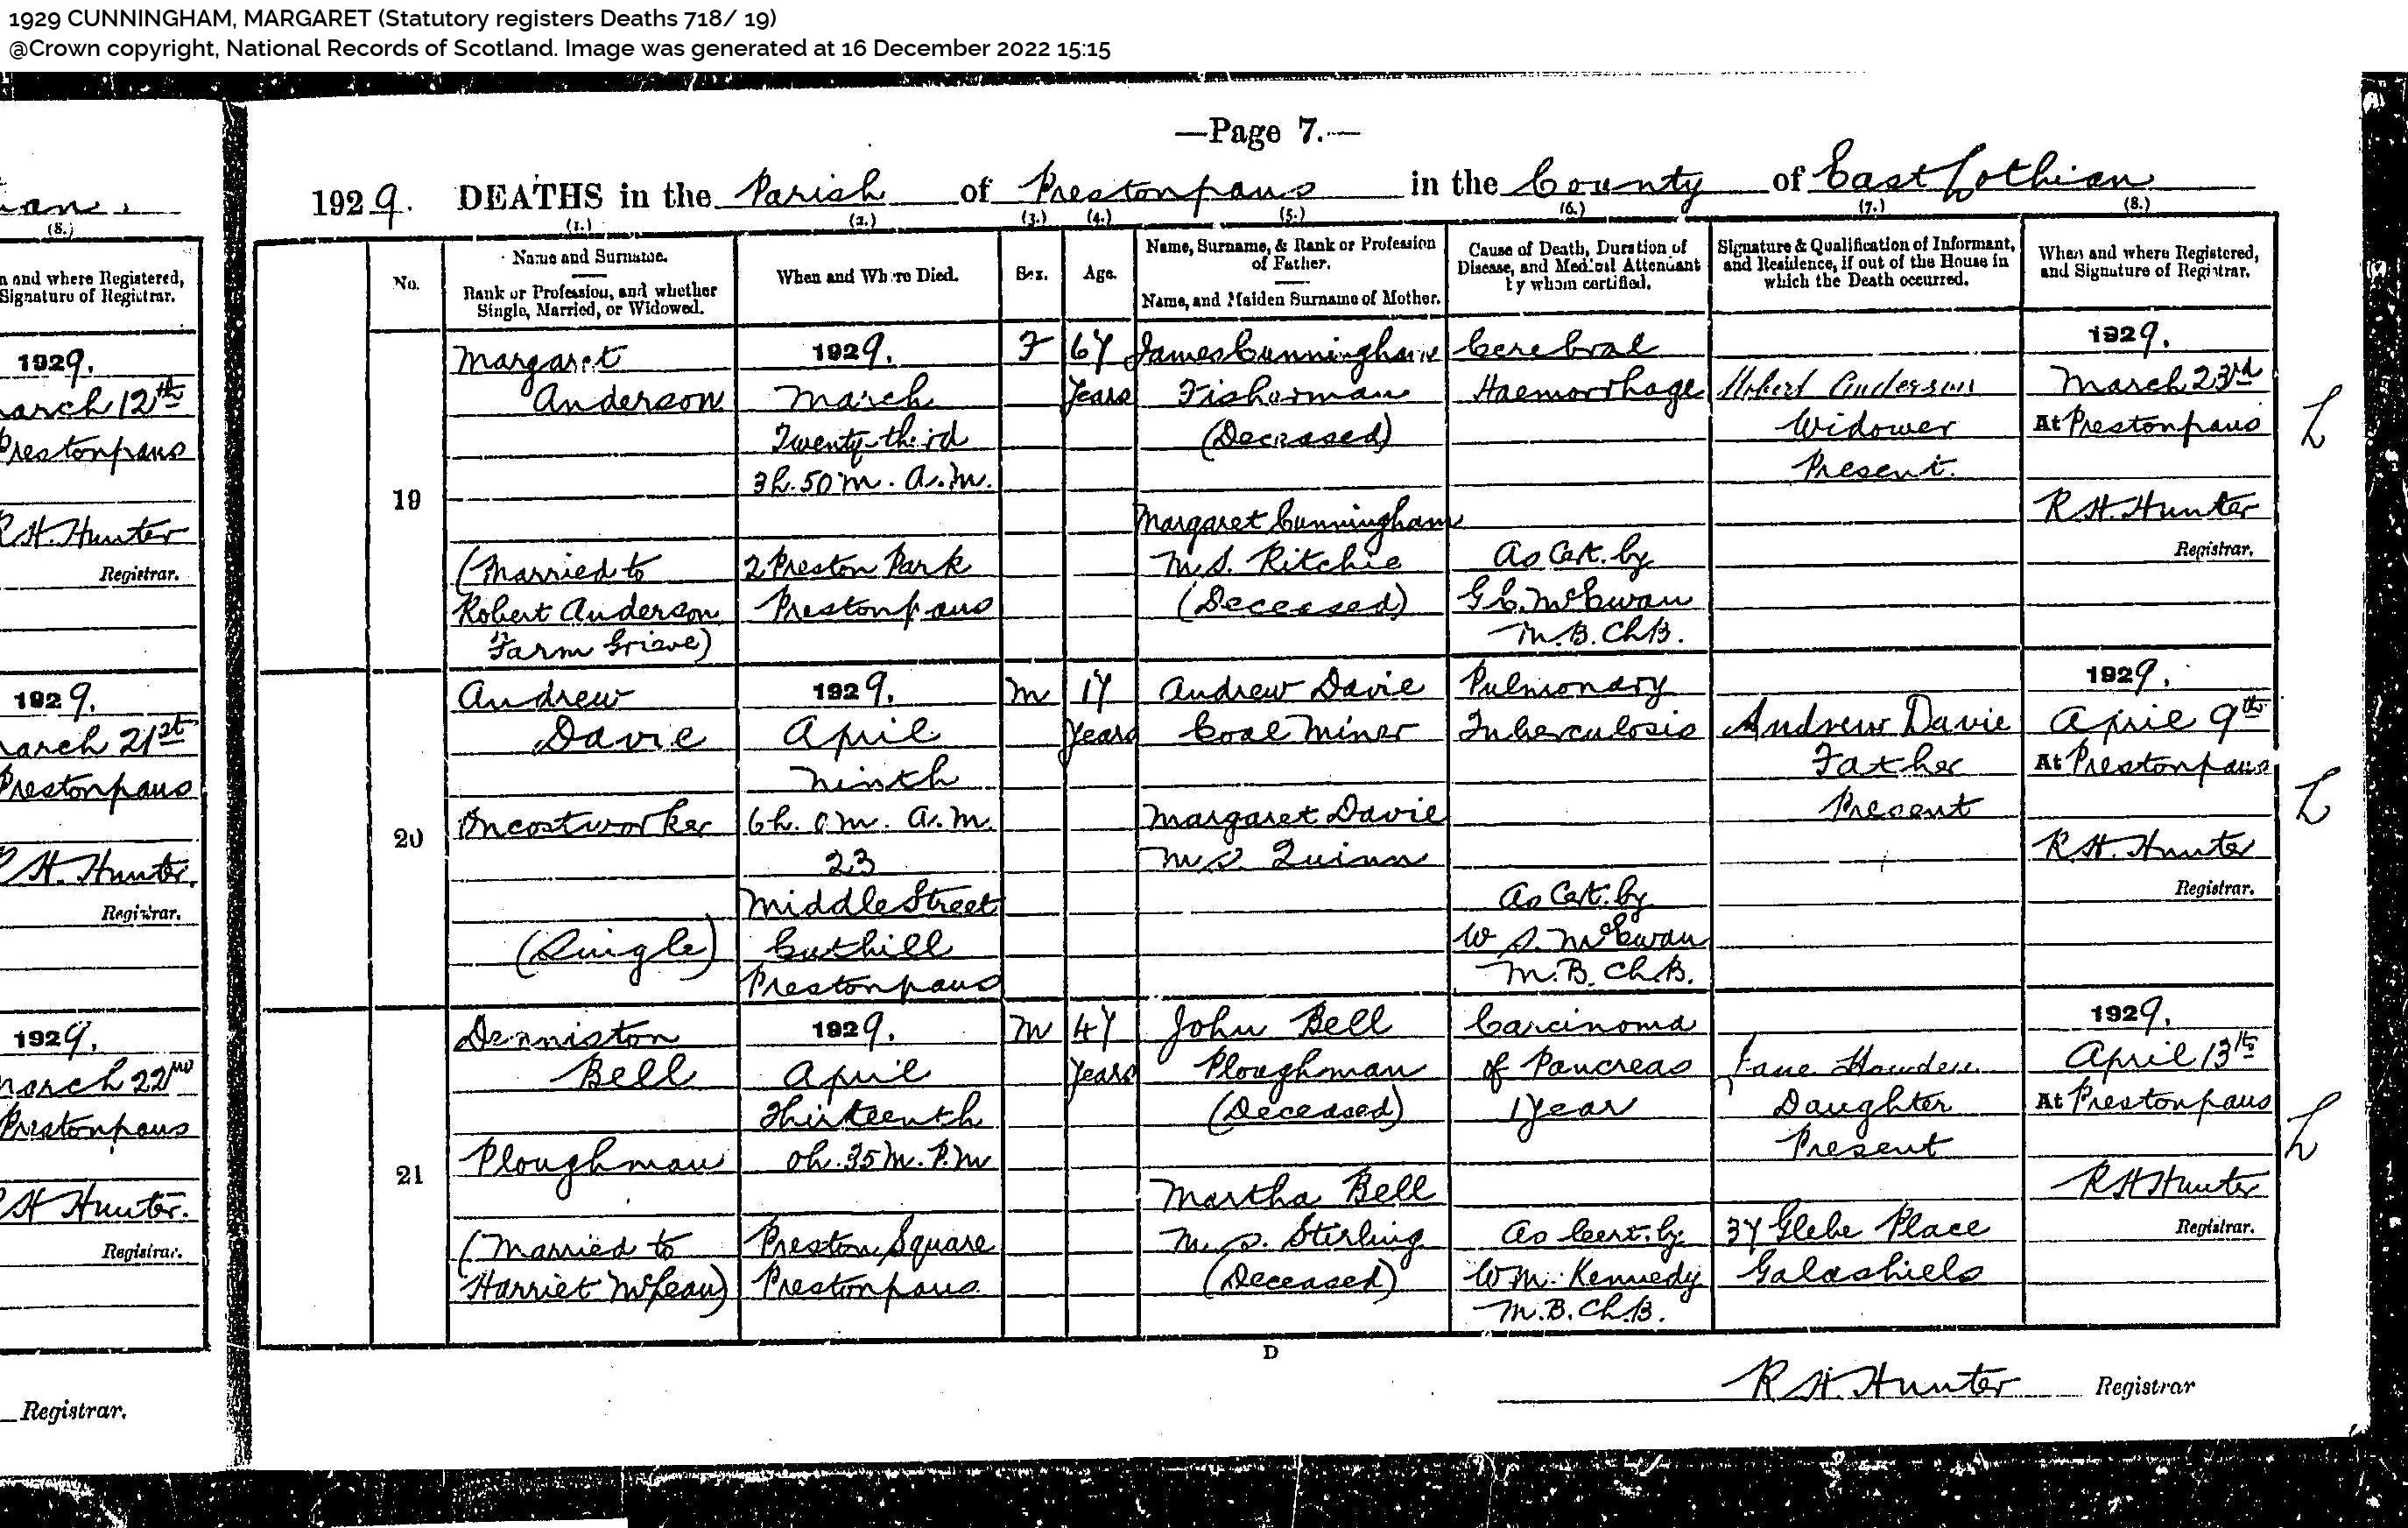 1929 CUNNINGHAM, MARGARET (Statutory registers Deaths 718/ 19)
@Crown copyright, National Records of Scotland. Image was generated at 16 December 2022 15:15
—Page 7.—
1929. DEATHS in the Parish of Prestonpans in the County of East Lothian
(1.) (2.) (3.) (4.) (5.) (6.) (7.) (8.)
No.
Name and Surname.
Rank or Profession, and whether
Single, Married, or Widowed.
When and Where Died.
Sex.
Age.
Name, Surname, & Rank or Profession
of Father.
Name, and Maiden Surname of Mother.
Cause of Death, Duration of
Disease, and Medical Attendant
by whom certified.
Signature & Qualification of Informant,
and Residence, if out of the House in
which the Death occurred.
When and where Registered,
and Signature of Registrar.
19
Margaret
Anderson
(Married to
Robert Anderson
Farm Grieve)
1929.
March
Twenty-third
3h. 50m. A.M.
2 Preston Park
Prestonpans
F
67
Years
James Cunningham
Fisherman
(Deceased)
Margaret Cunningham
M.S. Ritchie
(Deceased)
Cerebral
Haemorrhage
As Cert. by
G C. McEwan
M.B. Ch.B.
Robert Anderson
Widower
Present.
1929.
March 23rd
At Prestonpans
R.H. Hunter
Registrar.
L
20
Andrew
Davie
Oncostworker
(Single)
1929.
April
Ninth
6h. 0m. A.M.
23
Middle Street
Cuthill
Prestonpans
M
17
Years
Andrew Davie
Coal Miner
Margaret Davie
M.S. Quinn
Pulmonary
Tuberculosis
As Cert. by
W S. McEwan
M.B. Ch.B.
Andrew Davie
Father
Present
1929.
April 9th
At Prestonpans
R.H. Hunter
Registrar.
L
21
Denniston
Bell
Ploughman
(Married to
Harriet McLean)
1929.
April
Thirteenth
0h. 35m. P.M
Preston Square
Prestonpans
M
47
Years
John Bell
Ploughman
(Deceased)
Martha Bell
M.S. Stirling
(Deceased)
Carcinoma
of Pancreas
1 Year
As Cert. by
Wm. Kennedy
M.B. Ch.B.
Jane Howden
Daughter
Present
37 Glebe Place
Galashiels
1929.
April 13th
At Prestonpans
R H Hunter
Registrar.
L
D
R H. Hunter Registrar
(8.)
and where Registered,
Signature of Registrar.
1929.
March 12th
Prestonpans
R.H. Hunter
Registrar.
1929.
March 21st
Prestonpans
R H. Hunter.
Registrar.
1929.
March 22nd
Prestonpans
R H Hunter.
Registrar.
Registrar.